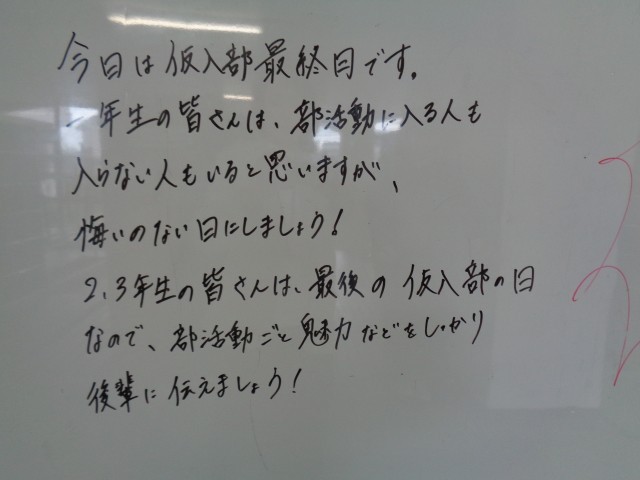 今日は仮入部最終日です。
一年生の皆さんは、部活動に入る人も
入らない人もいると思いますが、
悔いのない日にしましょう!
2,3年生の皆さんは、最後の仮入部の日
なので、部活動ごと魅力などをしっかり
後輩に伝えましょう!